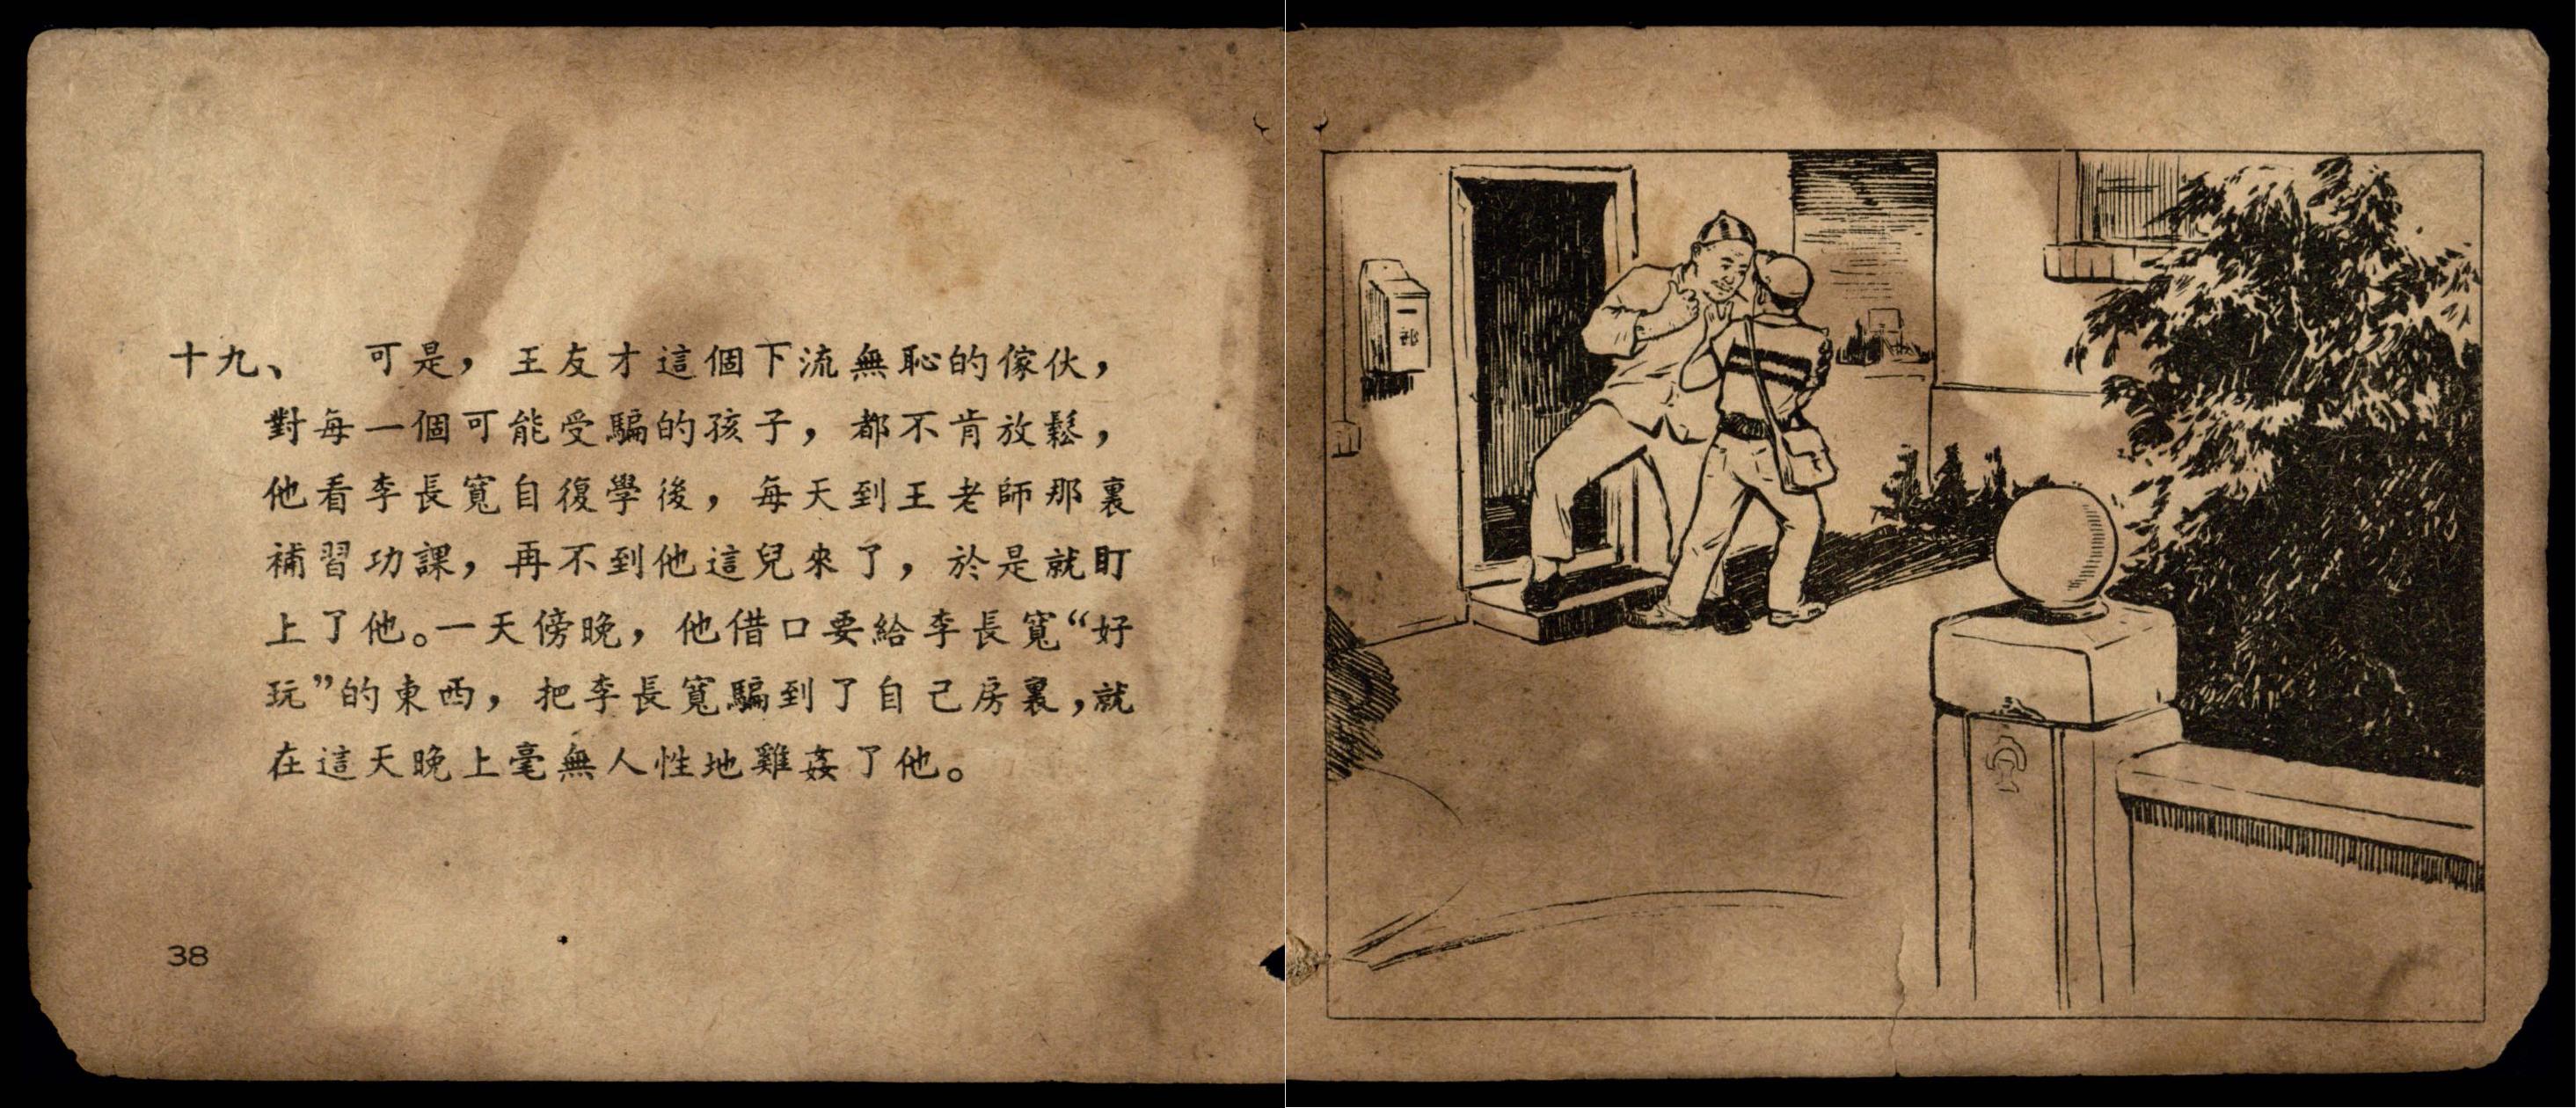 十九、　可是，王友才這個下流無恥的傢伙，
對每一個可能受騙的孩子，都不肯放鬆，
他看李長寬自復學後，每天到王老師那裏
補習功課，再不到他這兒來了，於是就盯
上了他。一天傍晚，他借口要給李長寬“好
玩”的東西，把李長寬騙到了自己房裏，就
在這天晚上毫無人性地雞姦了他。
38